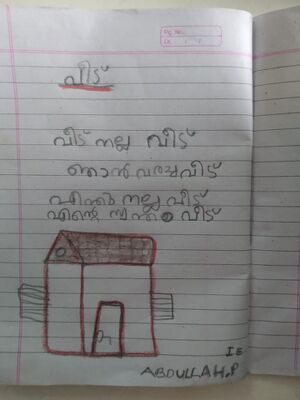 Pg. No.:
Dt. : / /
വീട്
വീട് നല്ല വീട്
ഞാൻ വരച്ച വീട്
എന്തു നല്ല വീട്
എന്റെ സ്വന്തം വീട്
I E
ABDULLAH.P